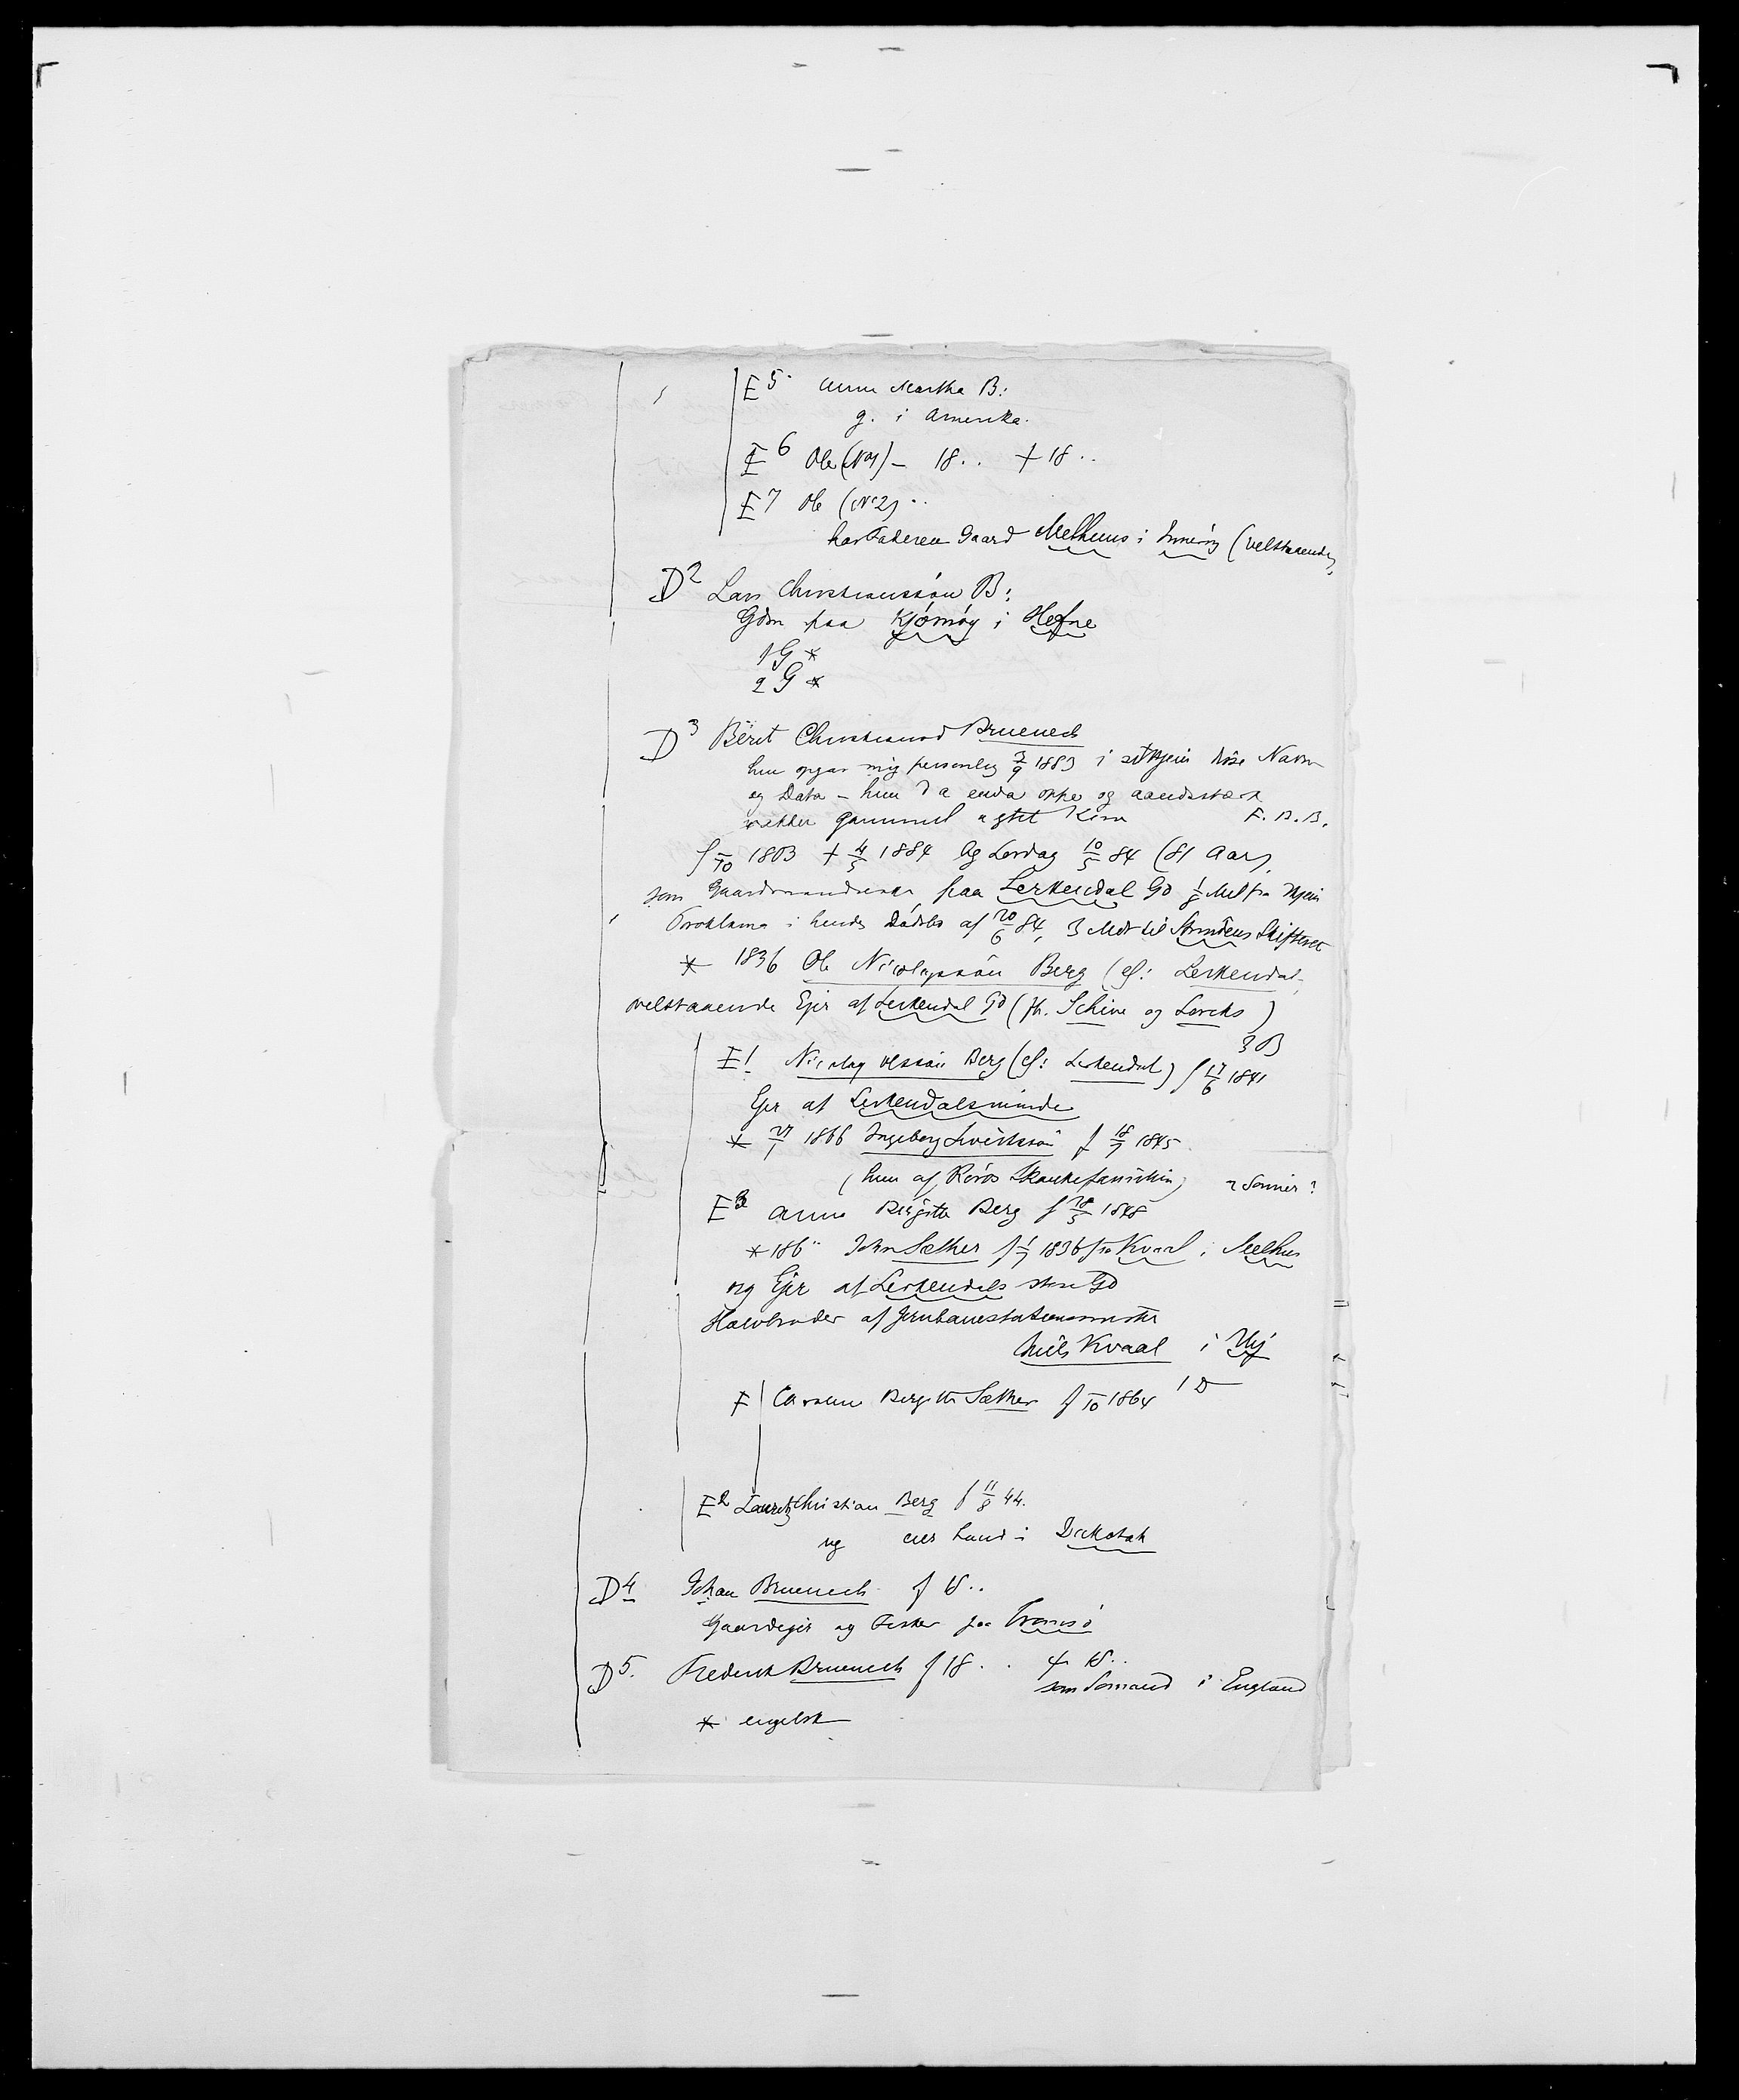 E 5. Anne Martha B:
g. i Amerika.
E 6 Ole (No 1) – 18.. + 18..
E 7 Ole (No 2) ..
har Faderen Gaard Melhuus i (velstaaende)
D 2 Lars Christianssön B:
Gdm paa i Hefne
1 G *
2 G *
D 3 Berit Christiansd Bruenech
hun opgav mig personlig 3/9 1883 i Navn
og Data – hun da enda og aandsstærk
vakker gammel agtet Kone F. B. B.
f –/10 1803 + 4/5 1884 Bg Lördag 10/5 84 (81 Aar)
som paa Lerkendal Gd 1/8 Mil fra Thjem
Proklama i hendes Dödsbo af 20/6 84, 3 Mdr til Strindens Skifteret
* 1836 Ole Nicolayssön Berg (ell: Lerkendal
velstaaende Ejer af Lerkendal Gd (fh. Schive og Lorcks)
3 B
E 1 Nicolay Olssön Berg (ell: Lerkendal) f 17/6 1841
Ejer af Lerkendalsminde
* 27/1 1866 Ingeborg f 18/7 1845
(hun af Röros Skankefamilien) 2 Sönner?
E 3 Anne Birgitte Berg f 28/5 1848
* 186.. John Sæther f 1/7 1836 fra Kvaal i Melhus
og Ejer af Lerkendals store Gd
Halvbroder af Jernbanestationsmester
Niels Kvaal i Thj
F Birgitte Sæther f –/10 1864 1 D
E 2 Lauritz Christian Berg f 11/8 44.
ug eier Land i Dakotah
D 4 Johan Bruenech f 18..
Gaardejer og Fisker paa Tromsö
D 5. Frederik Bruenech f 18.. + 18..
som Sömand i England
* engelsk